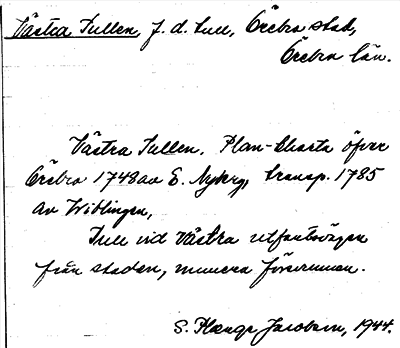 Västra Tullen, f. d. tull, Örebro stad,
Örebro län.
Västra Tullen. Plan-Charta öfver
Örebro 1748 av E. Nyberg, transp. 1785
av Wiblingen,
Tull vid Västra utfartsvägen
från staden, numera försvunnen.
S. Hænge Jacobson, 1944.